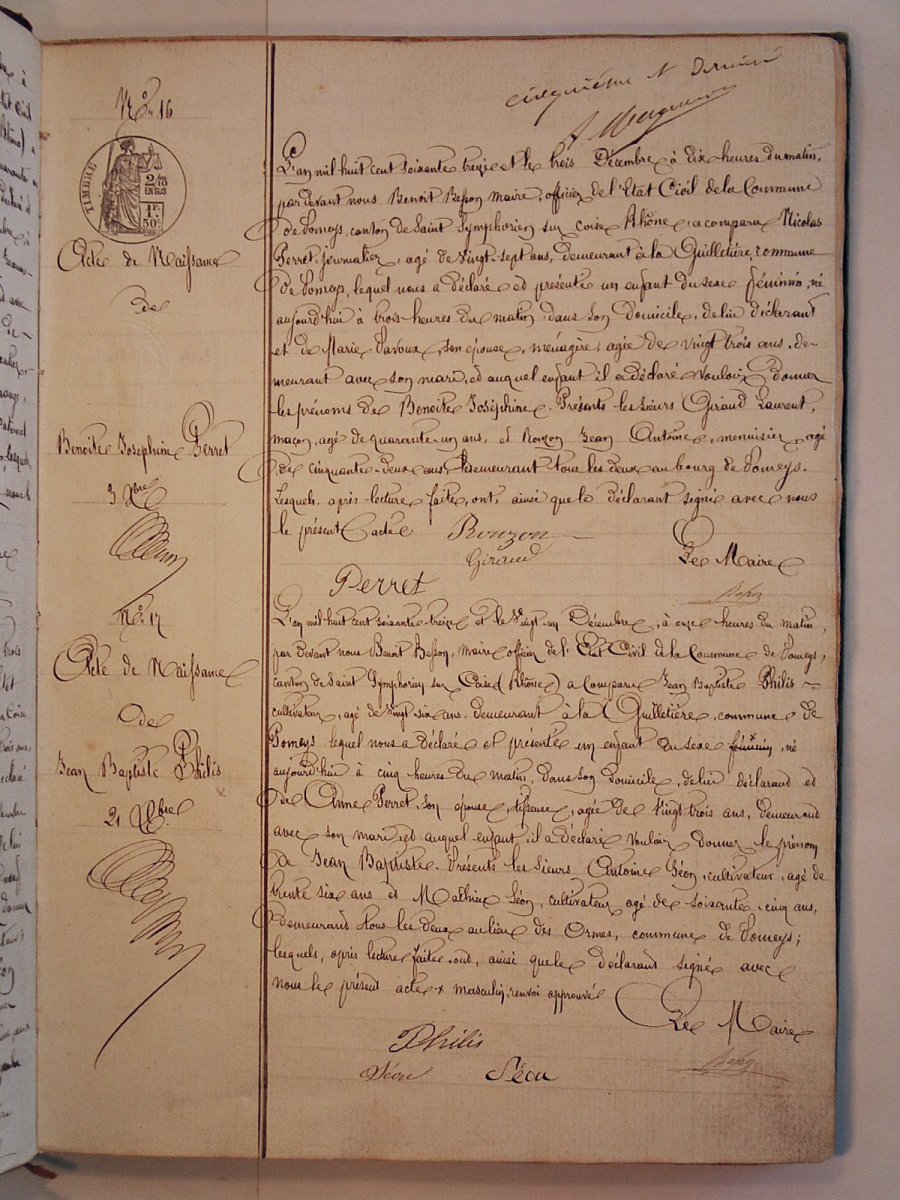 cinquième et dernier
No 16
TIMBRE
2/10
EN SUS
1F.
50c
Acte de Naissance
de
Benoite Joséphine Perret
3 Xbre
L'an mil huit cent soixante treize et le trois Décembre à dix heures du matin,
par devant nous Benoit Besson Maire, officier de l'Etat Civil de la Commune
de Pomeys, canton de Saint Symphorien sur Coise Rhône, a comparu Nicolas
Perret, journalier, agé de vingt-sept ans, demeurant à la Guilletière, commune
de Pomeys, lequel nous a déclaré et présenté un enfant du sexe féminin, né
aujourd'hui à trois heures du matin, dans son domicile, de lui déclarant
et de Marie Pavoux, son épouse, ménagère, agée de vingt trois ans, de-
meurant avec son mari, et auquel enfant il a déclaré vouloir donner
les prénoms de Benoite Joséphine. Présents les sieurs Giraud Laurent,
maçon, agé de quarante-un ans, et Ronzon Jean Antoine, menuisier, agé
de cinquante-deux ans, demeurant tous les deux au bourg de Pomeys.
Lesquels, après lecture faite, ont, ainsi que le déclarant signé avec nous
le présent acte
Ronzon
Giraud
Le Maire
Perret
No 17
Acte de Naissance
de
Jean Baptiste Philis
21 Xbre
L'an mil huit cent soixante treize et le vingt-un Décembre, à onze heures du matin,
par devant nous Benoit Besson, maire officier de l'Etat Civil de la Commune de Pomeys,
canton de Saint Symphorien sur Coise (Rhône) a comparu Jean Baptiste Philis
cultivateur, agé de vingt-six ans, demeurant à la Guilletière, commune de
Pomeys lequel nous a déclaré et présenté un enfant du sexe féminin, né
aujourd'hui à cinq heures du matin, dans son domicile, de lui déclarand et
de Anne Perret, son épouse, tisseuse, agée de vingt trois ans, demeurand
avec son mari, et auquel enfant, il a déclaré vouloir donner le prénom
de Jean Baptiste. Présents les sieurs Antoine Séon, cultivateur, agé de
trente six ans et Mathieu Séon, cultivateur agé de soixante-cinq ans,
demeurand tous les deux au lieu des Ormes, commune de Pomeys;
lesquels, après lecture faite, ont, ainsi que le déclarant signé avec
nous le présent acte x masculin, renvoi approuvé
Le Maire
Philis
Séon Séon